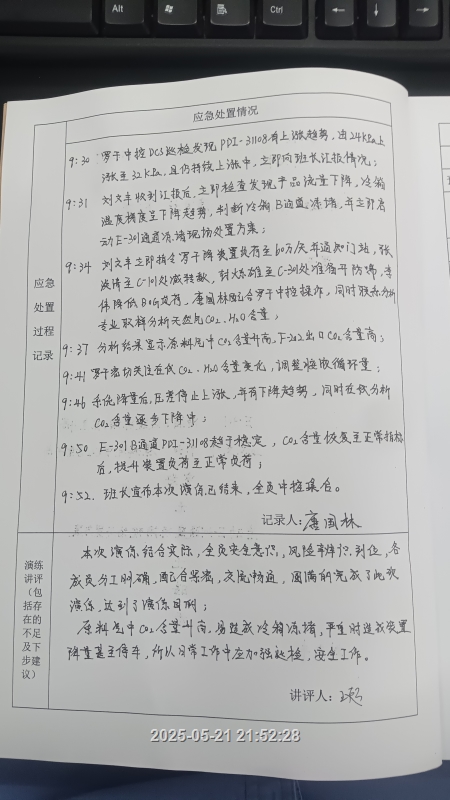 Alt
Ctrl
应急处置情况
应急
处置
过程
记录
9:30 罗于中控DCS巡检发现PDI-31108有上涨趋势，由24KPa上
涨至32KPa，且仍持续上涨中，立即向班长汇报情况；
9:31 刘文丰收到汇报后，立即检查发现产品流量下降，冷箱
温度梯度呈下降趋势，判断冷箱B通道冻堵，并立即启
动E-301通道冻堵现场处置方案；
9:34 刘文丰立即指令罗于降装置负荷至60万/天并通知门站，张
至C-101处减转数，封 雄至C-301处准备开防喘，
体降低BOG负荷，唐国林配合罗于中控操作，同时联系分析
专业取样分析天然气CO2、H2O含量；
9:37 分析结果显示原料气中CO2含量升高，F-202出口CO2含量高；
9:41 罗于密切关注在线CO2、H2O含量变化，调整 循环量；
9:46 系统降量后，压差停止上涨，并有下降趋势，同时在线分析
CO2含量逐步下降中；
9:50 E-301B通道PDI-31108趋于稳定，CO2含量恢复至正常指标
后，提升装置负荷至正常负荷；
9:52. 班长宣布本次演练已结束，全员中控集合。
记录人：唐国林
演练
讲评
（包
括存
在的
不足
及下
步建
议）
本次演练结合实际，全员安全意识，风险辨识到位，各
成员分工明确，配合默契，交流畅通，圆满的完成了此次
演练，达到了演练目的；
原料气中CO2含量升高，易造成冷箱冻堵，严重时造成装置
降量甚至停车，所以日常工作中应加强巡检，安全工作。
讲评人：
2025-05-21 21:52:28